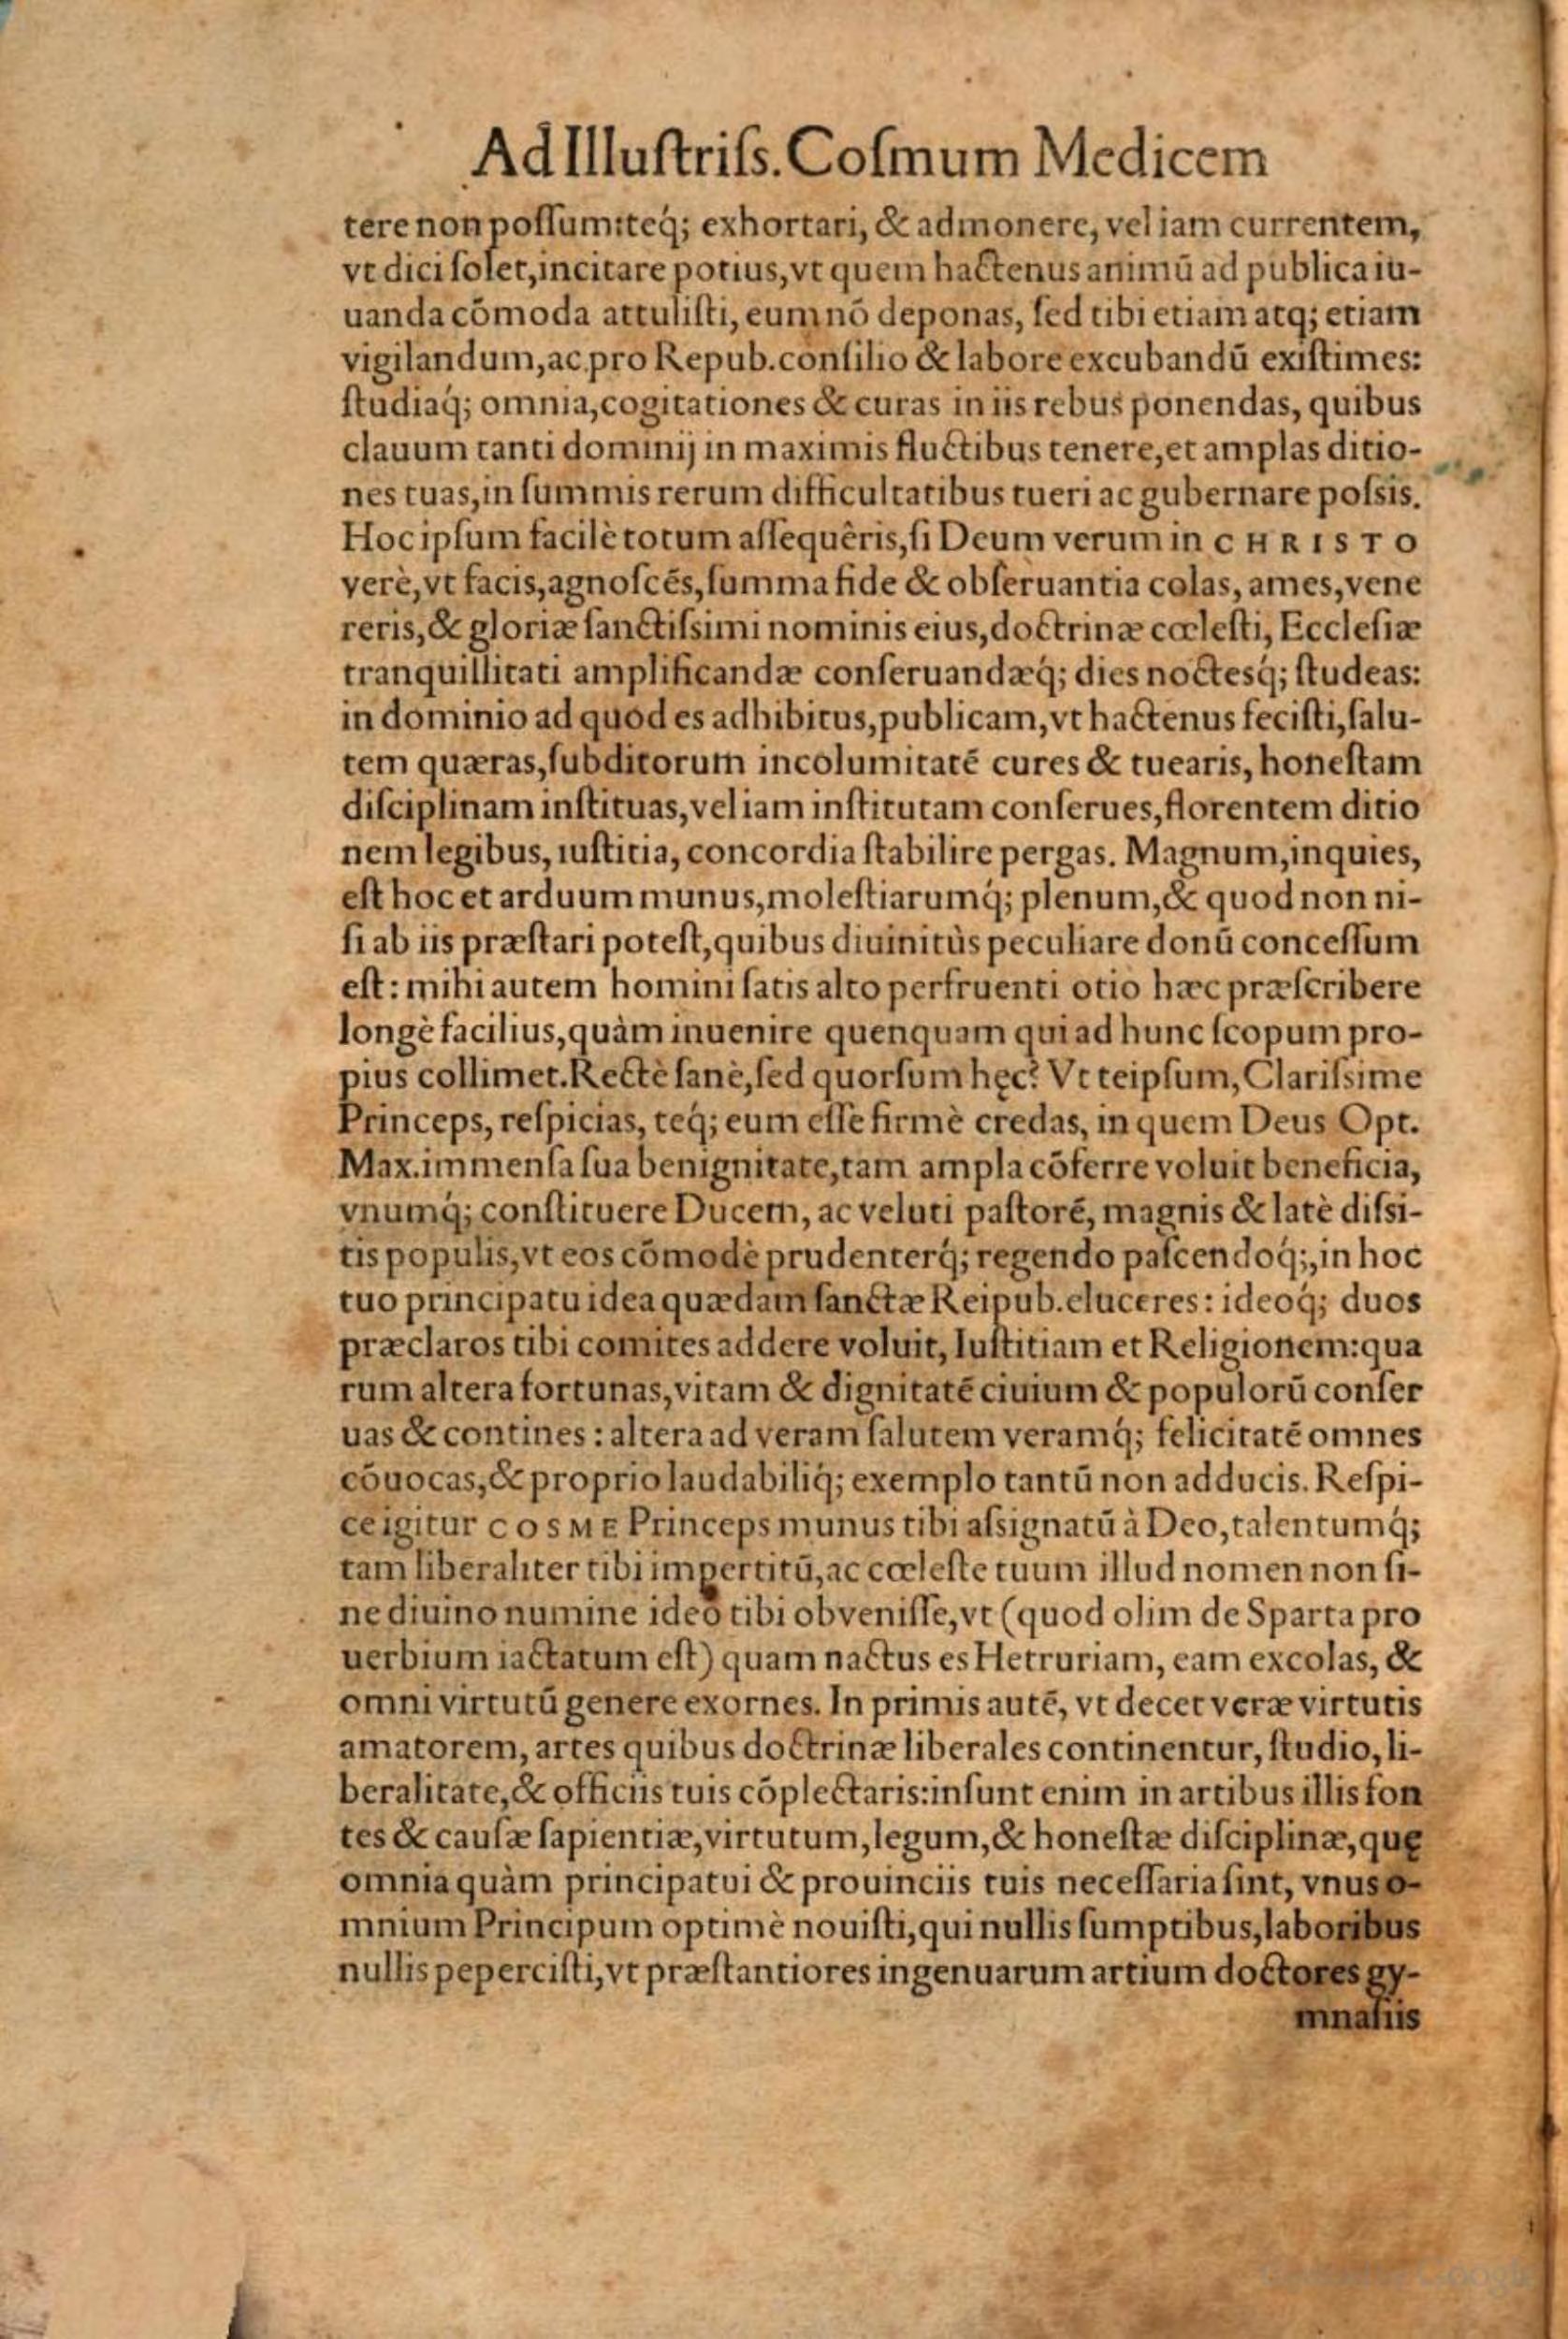 Ad Illuſtriſs. Coſmum Medicem
tere non poſſum: teq́; exhortari, & admonere, vel iam currentem,
vt dici ſolet, incitare potius, vt quem hactenus animū ad publica iu-
uanda cōmoda attuliſti, eum nō deponas, ſed tibi etiam atq; etiam
vigilandum, ac pro Repub. conſilio & labore excubandū exiſtimes:
ſtudiaq́; omnia, cogitationes & curas in iis rebus ponendas, quibus
clauum tanti dominij in maximis fluctibus tenere, et amplas ditio-
nes tuas, in ſummis rerum difficultatibus tueri ac gubernare poſsis.
Hoc ipſum facilè totum aſſequêris, ſi Deum verum in CHRISTO
verè, vt facis, agnoſcēs, ſumma fide & obſeruantia colas, ames, vene
reris, & gloriæ ſanctiſsimi nominis eius, doctrinæ cœleſti, Eccleſiæ
tranquillitati amplificandæ conſeruandæq́; dies noctesq́; ſtudeas:
in dominio ad quod es adhibitus, publicam, vt hactenus feciſti, ſalu-
tem quæras, ſubditorum incolumitatē cures & tuearis, honeſtam
diſciplinam inſtituas, vel iam inſtitutam conſerues, florentem ditio
nem legibus, iuſtitia, concordia ſtabilire pergas. Magnum, inquies,
eſt hoc et arduum munus, moleſtiarumq́; plenum, & quod non ni-
ſi ab iis præſtari poteſt, quibus diuinitùs peculiare donū conceſſum
eſt: mihi autem homini ſatis alto perfruenti otio hæc præſcribere
longè facilius, quàm inuenire quenquam qui ad hunc ſcopum pro-
pius collimet. Rectè ſanè, ſed quorſum hęc? Vt teipſum, Clariſsime
Princeps, reſpicias, teq́; eum eſſe firmè credas, in quem Deus Opt.
Max. immenſa ſua benignitate, tam ampla cōferre voluit beneficia,
vnumq́; conſtituere Ducem, ac veluti paſtorē, magnis & latè diſsi-
tis populis, vt eos cōmodè prudenterq́; regendo paſcendoq́;, in hoc
tuo principatu idea quædam ſanctæ Reipub. eluceres: ideoq́; duos
præclaros tibi comites addere voluit, Iuſtitiam et Religionem: qua
rum altera fortunas, vitam & dignitatē ciuium & populorū conſer
uas & contines: altera ad veram ſalutem veramq́; felicitatē omnes
cōuocas, & proprio laudabiliq́; exemplo tantū non adducis. Reſpi-
ce igitur COSME Princeps munus tibi aſsignatū à Deo, talentumq́;
tam liberaliter tibi impertitū, ac cœleſte tuum illud nomen non ſi-
ne diuino numine ideo tibi obveniſſe, vt (quod olim de Sparta pro
uerbium iactatum eſt) quam nactus es Hetruriam, eam excolas, &
omni virtutū genere exornes. In primis autē, vt decet veræ virtutis
amatorem, artes quibus doctrinæ liberales continentur, ſtudio, li-
beralitate, & officiis tuis cōplectaris: inſunt enim in artibus illis fon
tes & cauſæ ſapientiæ, virtutum, legum, & honeſtæ diſciplinæ, quę
omnia quàm principatui & prouinciis tuis neceſſaria ſint, vnus o-
mnium Principum optimè nouiſti, qui nullis ſumptibus, laboribus
nullis peperciſti, vt præſtantiores ingenuarum artium doctores gy-
mnaſiis